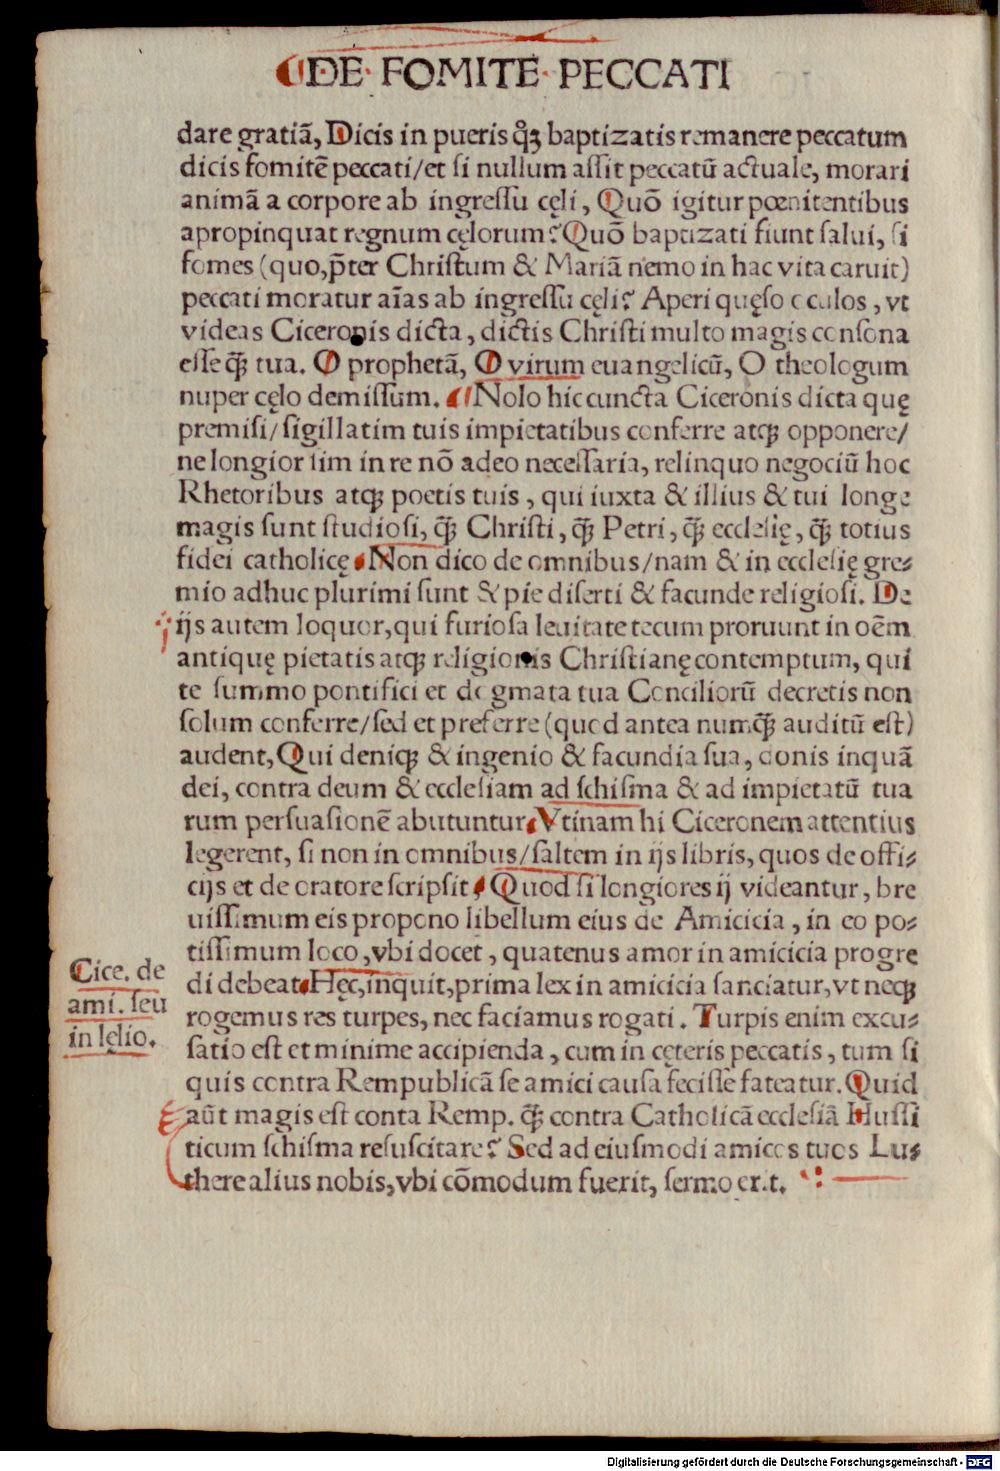 DE· FOMITE· PECCATI
dare gratiā, Dicis in pueris qꝫ baptizatis remanere peccatum
dicis fomitē peccati/et si nullum assit peccatū actuale, morari
animā a corpore ab ingressu cęli, Quō igitur pœnitentibus
apropinquat regnum cęlorum? Quō baptizati fiunt salui, si
fomes (quo,p̄ter Christum & Mariā nemo in hac vita caruit)
peccati moratur aīas ab ingressu cęli? Aperi quęso oculos, vt
videas Ciceronis dicta, dictis Christi multo magis consona
esse qꝫ̄ tua. O prophetā, O virum euangelicū, O theologum
nuper cęlo demissum. Nolo hic cuncta Ciceronis dicta quę
premisi/sigillatim tuis impietatibus conferre atqꝫ opponere/
ne longior sim in re nō adeo necessaria, relinquo negociū hoc
Rhetoribus atqꝫ poetis tuis, qui iuxta & illius & tui longe
magis sunt studiosi, qꝫ̄ Christi, qꝫ̄ Petri, qꝫ̄ ecclesię, qꝫ̄ totius
fidei catholicę. Non dico de omnibus/nam & in ecclesię gre⸗
mio adhuc plurimi sunt & pie diserti & facunde religiosi. De
ijs autem loquor,qui furiosa leuitate tecum proruunt in oēm
antiquę pietatis atqꝫ religionis Christianę contemptum, qui
te summo pontifici et dogmata tua Conciliorū decretis non
solum conferre/sed et preferre (quod antea numqꝫ̄ auditū est)
audent, Qui deniqꝫ & ingenio & facundia sua, donis inquā
dei, contra deum & ecclesiam ad schisma & ad impietatū tua
rum persuasionē abutuntur. Vtinam hi Ciceronem attentius
legerent, si non in omnibus/saltem in ijs libris, quos de offi⸗
cijs et de oratore scripsit, Quod si longiores ij videantur, bre
uissimum eis propono libellum eius de Amicicia, in eo po⸗
tissimum loco,vbi docet, quatenus amor in amicicia progre
di debeat. Hęc,inquit,prima lex in amicicia sanciatur,vt neqꝫ
rogemus res turpes, nec faciamus rogati. Turpis enim excu⸗
satio est et minime accipienda, cum in cęteris peccatis, tum si
quis contra Rempublicā se amici causa fecisse fateatur. Quid
aūt magis est conta Remp. qꝫ̄ contra Catholicā ecclesiā Hussi
ticum schisma resuscitare? Sed ad eiusmodi amicos tuos Lu⸗
there alius nobis,vbi cōmodum fuerit, sermo erit.
Cice. de
ami. seu
in lęlio.
Digitalisierung gefördert durch die Deutsche Forschungsgemeinschaft - DFG